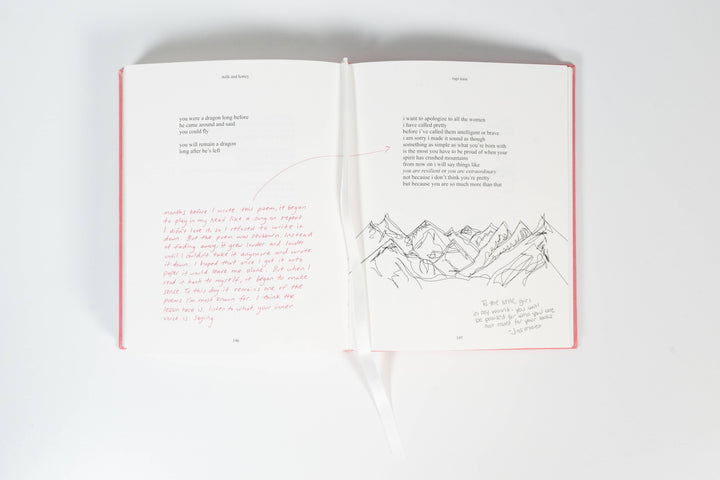 milk and honey
you were a dragon long before
he came around and said
you could fly
you will remain a dragon
long after he's left
months before I wrote this poem, it began
to play in my head like a song on repeat
I didn't love it, so I refused to write it
down. But the poem was stubborn. Instead
of fading away, it grew louder and louder
until I couldn't take it anymore and wrote
it down. I hoped that once I got it onto
paper it would leave me alone. But when I
read it back to myself, it began to make
sense. To this day it remains one of the
poems I'm most known for. I think the
lesson here is: listen to what your inner
voice is saying.
146
rupi kaur
i want to apologize to all the women
i have called pretty
before i've called them intelligent or brave
i am sorry i made it sound as though
something as simple as what you're born with
is the most you have to be proud of when your
spirit has crushed mountains
from now on i will say things like
you are resilient or you are extraordinary
not because i don't think you're pretty
but because you are so much more than that
To the little girl
in my womb: you will
be praised for who you are
not most for your looks
147